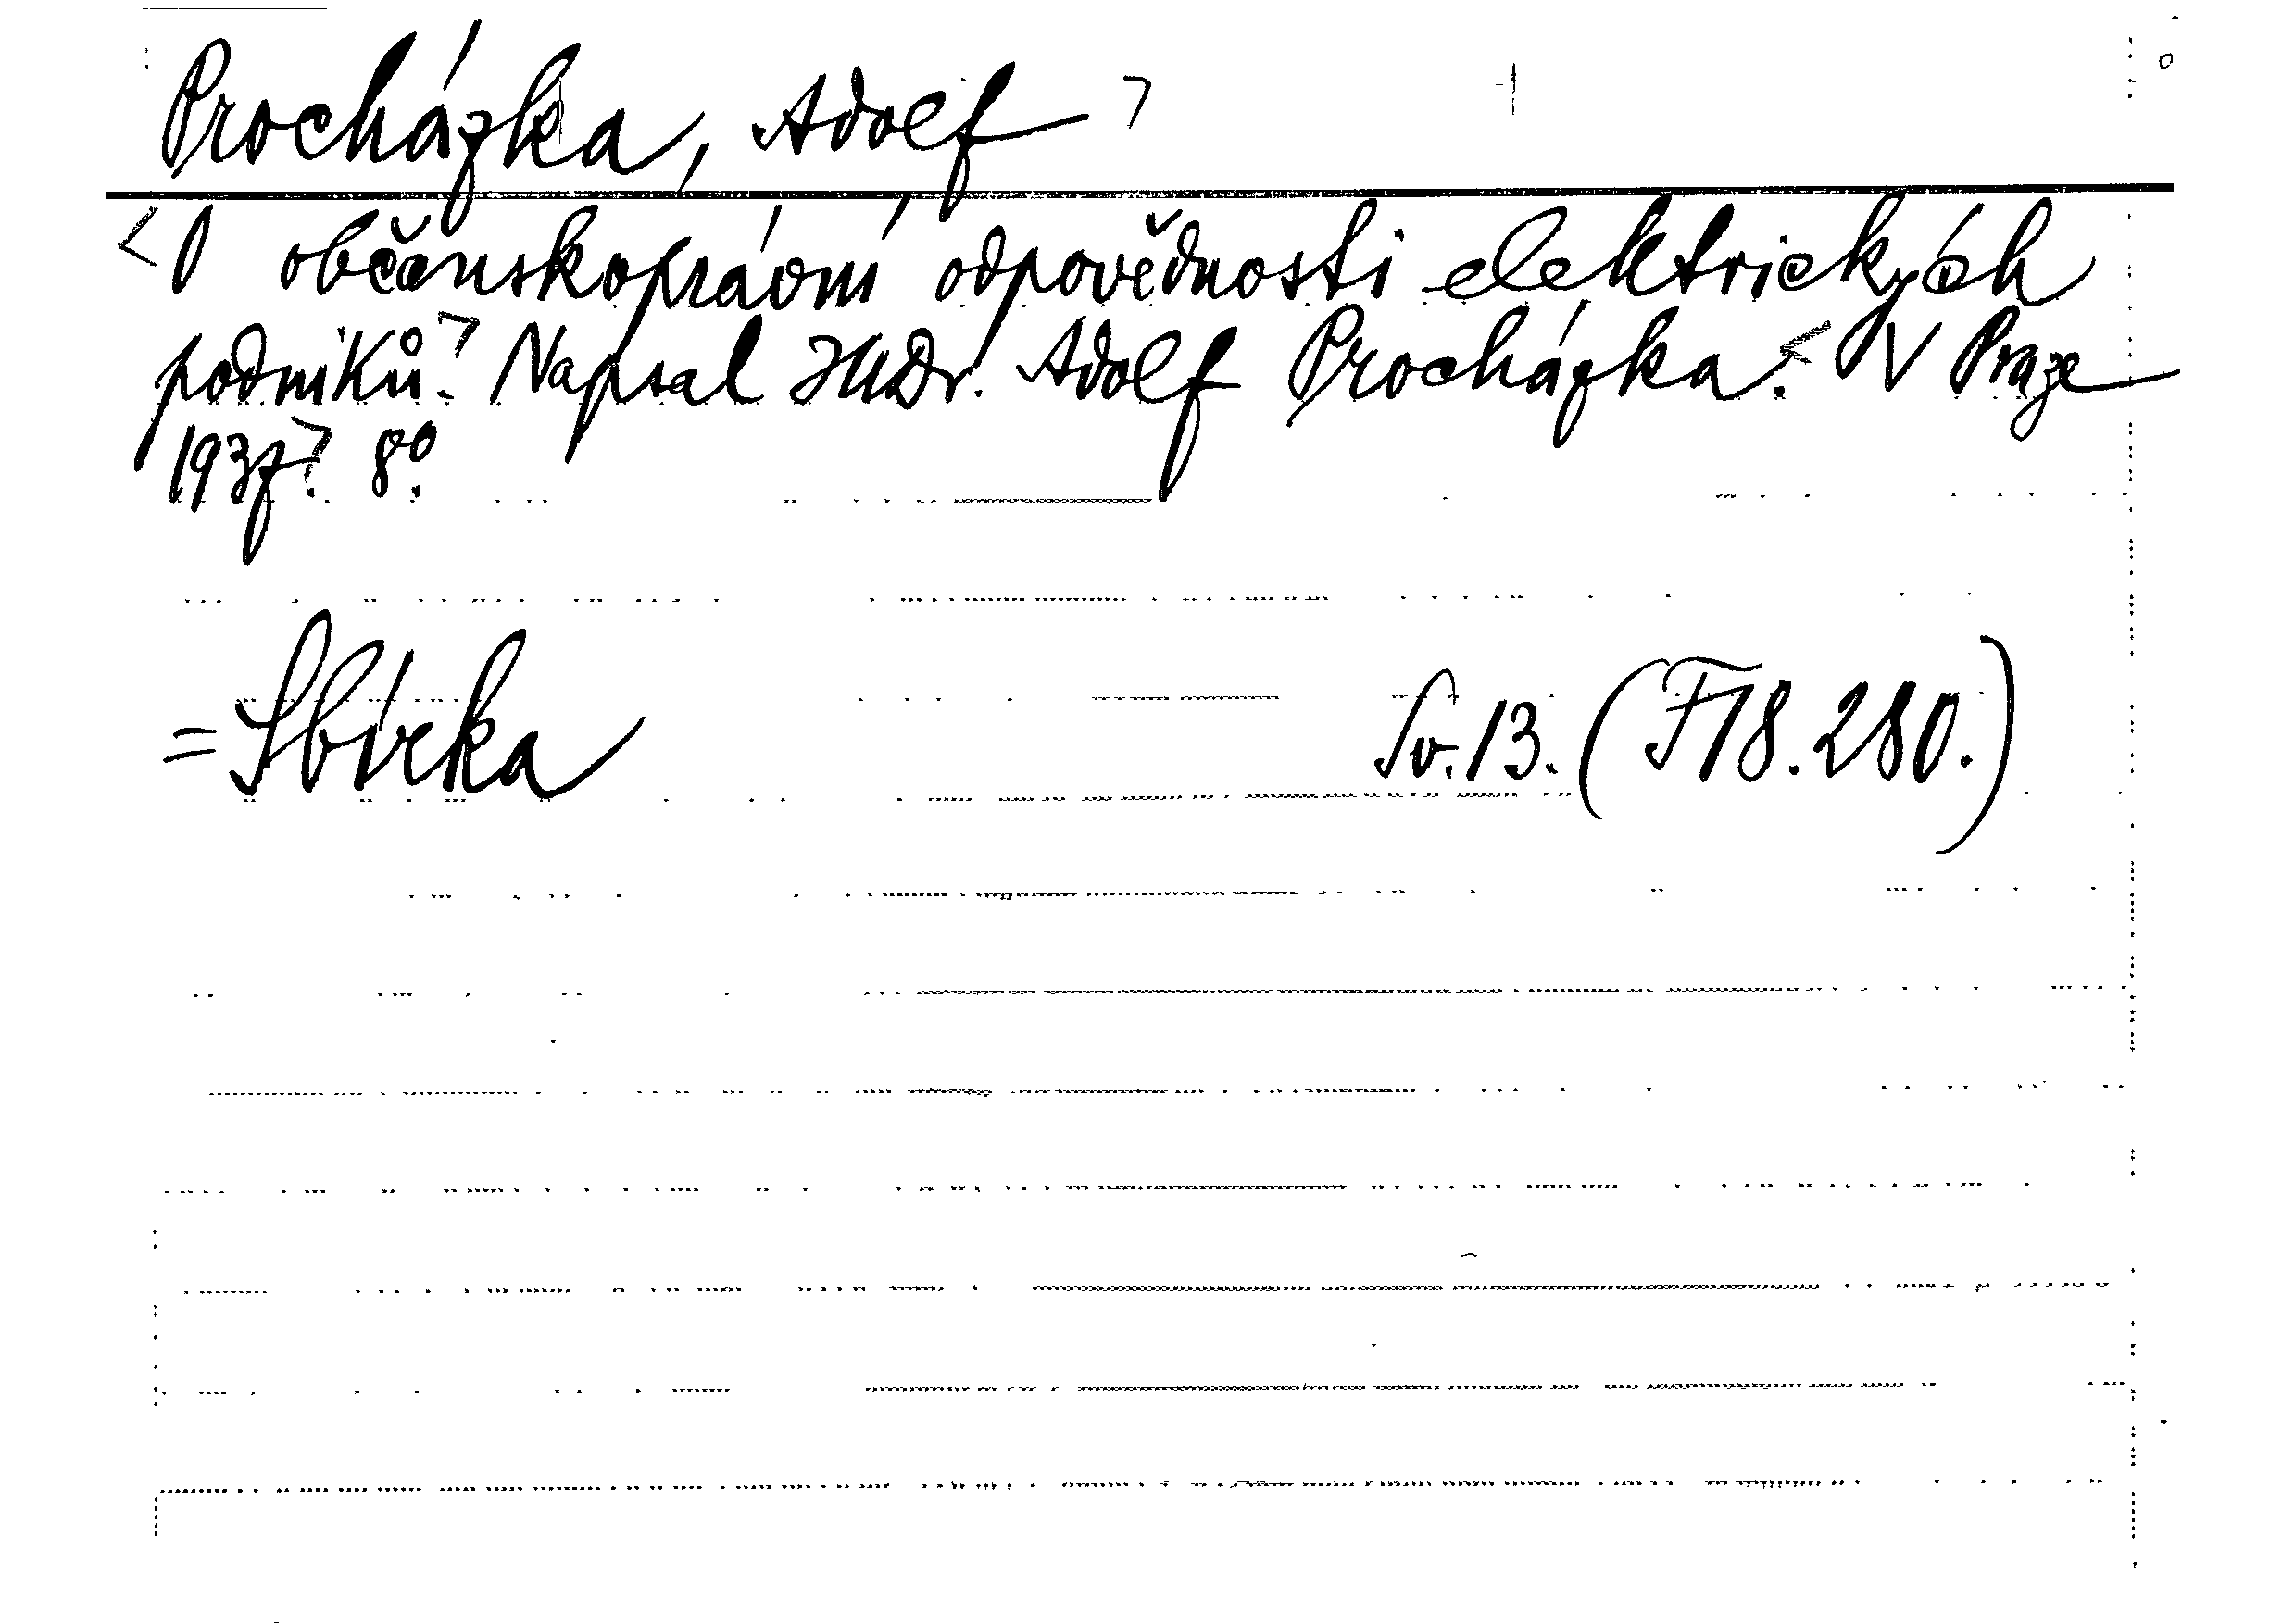 Procházka, Adolf
O občanskoprávní odpovědnosti elektrických
podniků. Napsal JUDr. Adolf Procházka. V Praze
1937. 8°.
= Sbírka Sv. 13. (F 18.280.)